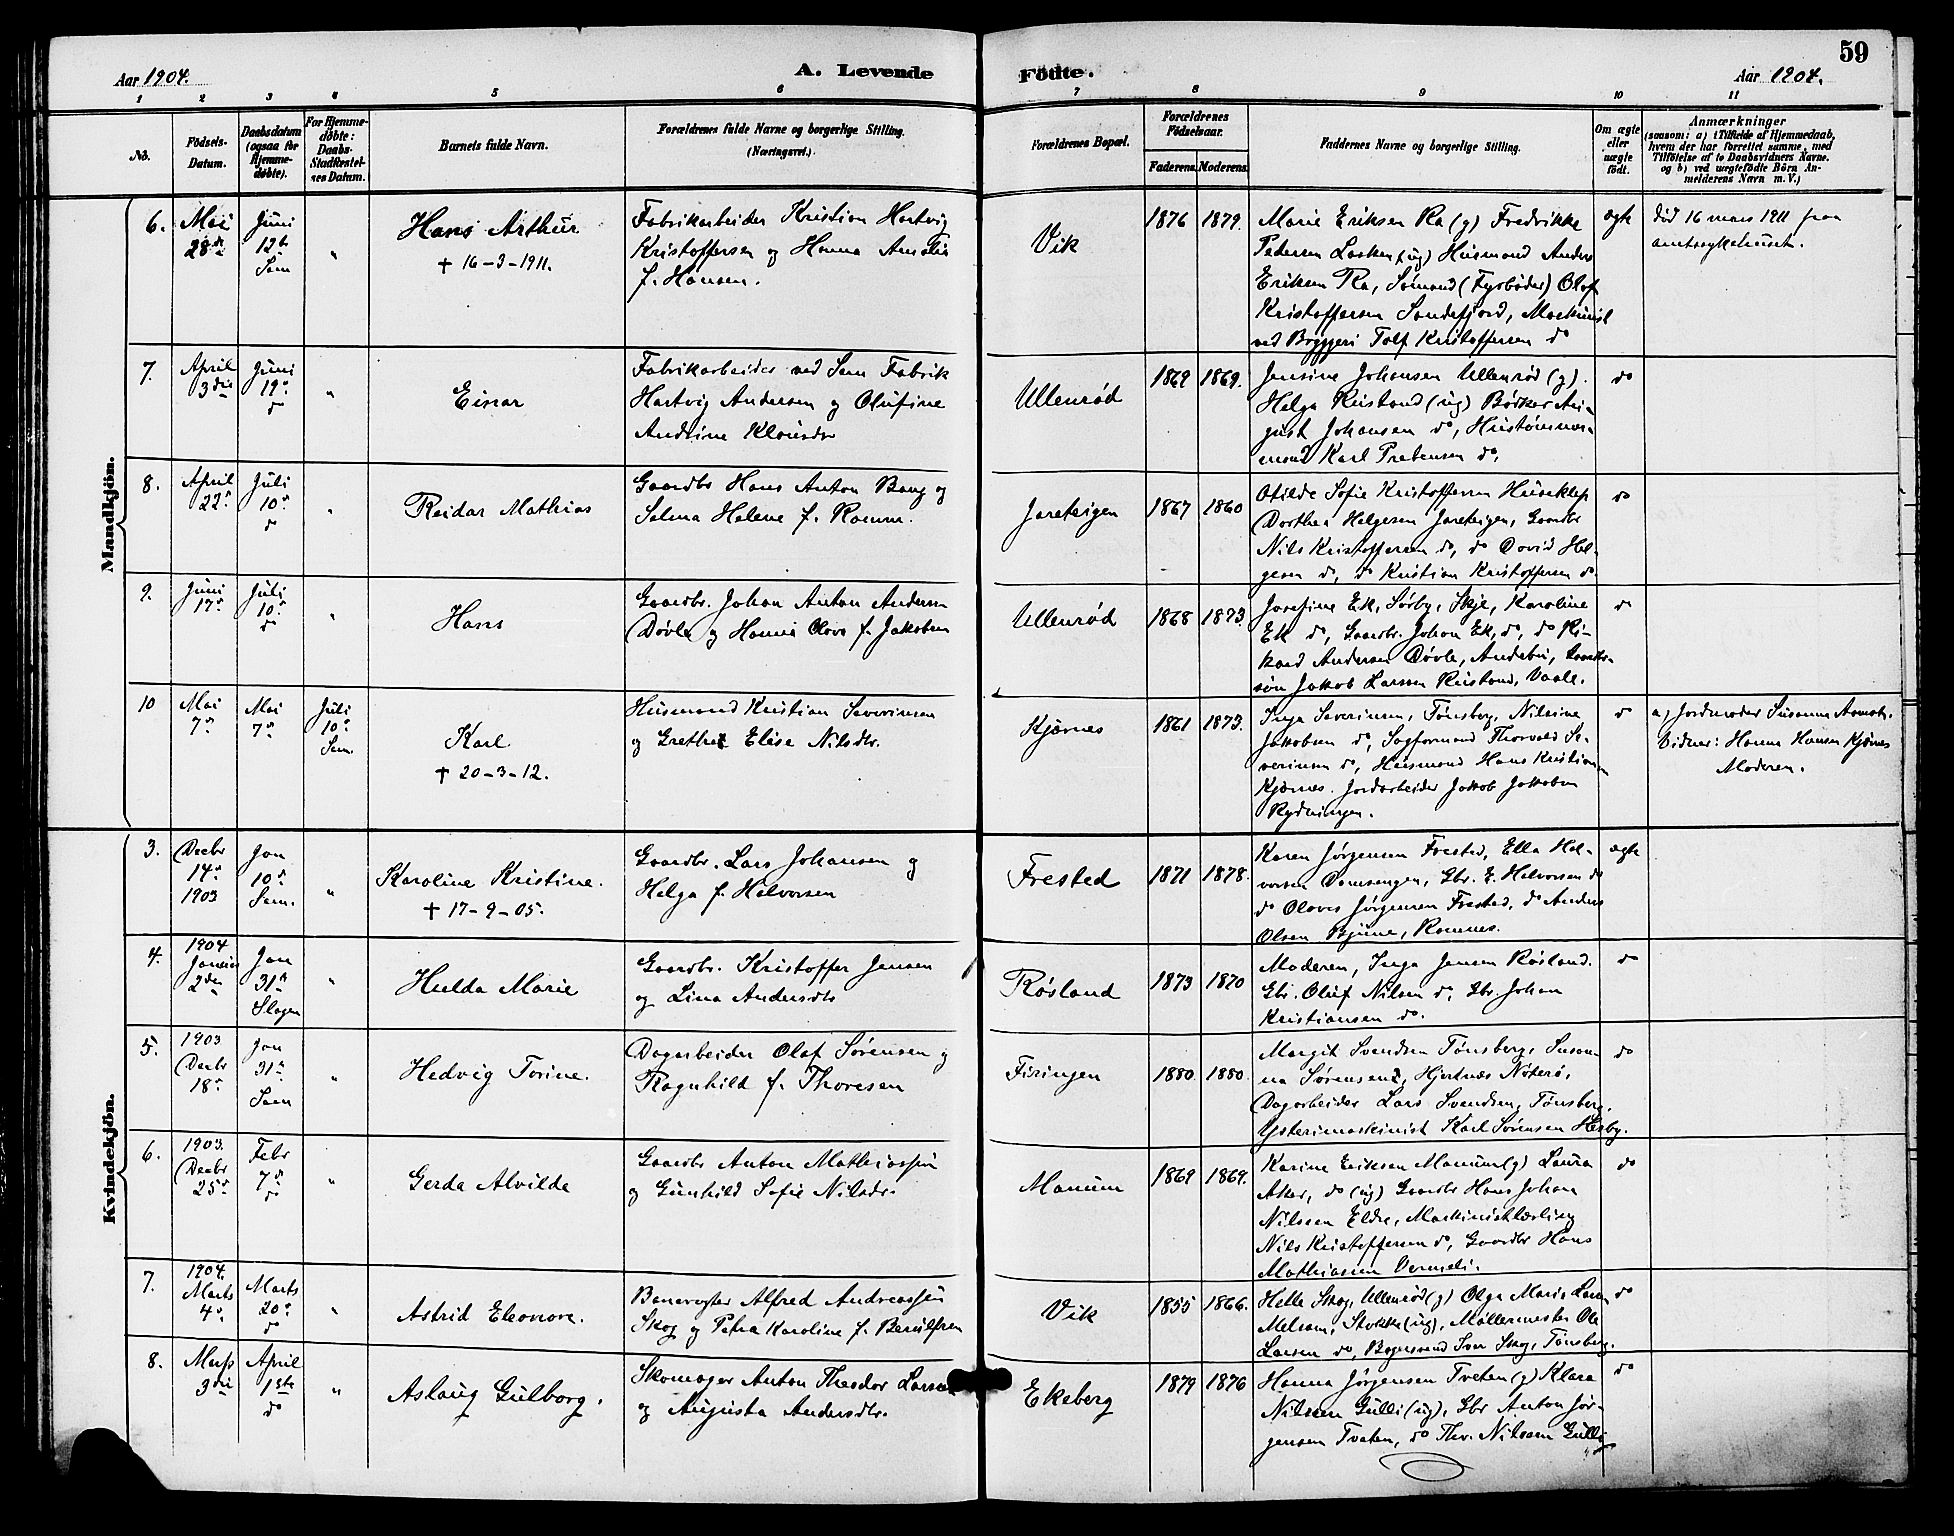 59
Aar 1904.
A. Levende
Födte.
Aar 1904.
1 2 3 4 5 6 7 8 9 10 11
No.
Födsels-
Datum.
Daabsdatum
(ogsaa for
Hjemme-
döbte).
For Hjemme-
döbte:
Daabs-
Stadfæstel-
ses Datum.
Barnets fulde Navn.
Forældrenes fulde Navne og borgerlige Stilling.
(Næringsvei.)
Forældrenes Bopæl.
Forældrenes
Födselsaar.
Faderens. Moderens.
Faddernes Navne og borgerlige Stilling.
Om ægte
eller
uægte
födt.
Anmærkninger
(saasom: a) i Tilfælde af Hjemmedaab,
hvem der har forrettet samme, med
Tilföielse af to Daabsvidners Navne.
og b) ved uægtefödte Börn An-
melderens Navn m. V.)
Mandkjön.
6.
Mai
28de
Juni
12te
Sem
"
Hans Arthur
† 16-3-1911.
Fabrikarbeider Kristian Hartvig
Kristoffersen og Hanna Amalia
f. Hansen.
Vik
1876 1879.
Marie Eriksen Ra (g) Fredrikke
Pedersen Lasken (ug) Husmand Anders
Eriksen Ra, Sømand (Fyrbøder) Olaf
Kristoffersen Sandefjord, Maskinist
ved Bryggeri Tolf Kristoffersen do
ægte
Død 16 mars 1911 paa
amtssykehuset.
7.
April
3die
Juni
19de
do
"
Einar
Fabrikarbeider ved Sem Fabrik
Hartvig Andersen og Olufine
Andrine Klausdr
Ullenrød
1869 1869.
Jensine Johansen Ullenrød (g).
Helga Ristand (ug) Bødker Au-
gust Johansen do, Hustømmer-
mand Karl Prebensen do.
do
8.
April
22de
Juli
10de
do
"
Reidar Mathias
Gaardbr Hans Anton Bang og
Selma Helene f. Ramm.
Jareteigen
1867 1860
Otilde Sofie Kristoffersen Huseklep
Dorthea Helgesen Jareteigen, Gaardbr
Nils Kristoffersen do, do David Hel-
gesen do, do Kristian Kristoffersen do
do
9.
Juni
17de
Juli
10de
do
"
Hans
Gaardbr. Johan Anton Andersen
Døvle og Hanna Olava f. Jakobsen
Ullenrød
1868 1873.
Josefine Ek, Sørby, Skje, Karoline
Ek do, Gaardbr. Johan Ek, do, do Ri-
kard Andersen Døvle, Andebu, Gaardbr-
søn Jakob Larsen Ristand, Vaale.
do
10
Mai
7de
Mai
7de
Juli
10de
Sem
Karl
† 20-3-12.
Husmand Kristian Severinsen
og Grethe Elise Nilsdr.
Kjærnes
1861 1873.
Inga Severinsen, Tønsberg, Nilsine
Jakobsen do, Sagformand Thorvald Se-
verinsen do, Husmand Hans Kristiansen
Kjærnes. Jordarbeider Jakob Jakobsen
Rydningen.
do
a) Jordmoder Susanne
Vidner: Hanna Hansen Kjærnes
Moderen.
Kvindekjön.
3.
Decbr
14de
1903
Jan
10de
Sem.
"
Karoline Kristine.
† 17-9-05.
Gaardbr. Lars Johansen og
Helga f. Halvorsen
Frested
1871 1878.
Karen Jørgensen Frested, Ella Hal-
vorsen Damsengen, Gbr. E. Halvorsen do
do Olaves Jørgensen Frested, do Anders
Olsen Bjune, Ramnes.
ægte
4.
1904
Januar
2den
Jan
31te
Slagen
"
Hulda Marie
Gaardbr. Kristoffer Jensen
og Lina Andersdtr
Røsland
1873 1870
Moderen, Inga Jensen Røsland.
Gbr. Oluf Nilsen do, Gbr. Johan
Kristiansen do.
do
5.
1903
Decbr
18de
Jan
31te
Sem
"
Hedvig Torine.
Dagarbeider Olaf Sørensen og
Ragnhild f. Thoresen
Firingen
1880. 1880.
Margit Svendsen Tønsberg, Susan-
na Sørensen, Hjertnæs Nøterø,
Dagarbeider Lars Svendsen, Tønsberg.
Ysterimaskinist Karl Sørensen Hesby.
do
6.
1903.
Decbr
25de
Febr
7de
do
"
Gerda Alvilda
Gaardbr Anton Mathiassen
og Gunhild Sofie Nilsdr.
Manum
1869 1869.
Karine Eriksen Manum (g) Laura
Aker, do (ug) Gaardbr Hans Johan
Nilssen Eldre, Maskinistlærling
Nils Kristoffersen do, Gaardbr Hans
Mathiassen Vermeli.
do
7.
1904.
Marts
4de
Marts
20de
do
"
Astrid Eleonore.
Banevogter Alfred Andreassen
Skog og Petra Karoline f. Berulfsen
Vik
1855 1866.
Helle Skog, Ullenrød (g) Olga Marie Larsen
Melsom, Stokke (ug), Møllermester Ole
Larsen do, Bogmand Iver Skog, Tønsberg.
do
8.
Marts
3die
April
1ste
do
"
Aslaug Gulborg.
Skomager Anton Theodor Larsen
og Augusta Andersdtr.
Ekeberg
1879 1876
Hanna Jørgensen Tveten (g) Klara
Nilssen Gulli (ug), Gbr Anton Jør-
gensen Tveten, do Thv. Nilssen Gulli
do